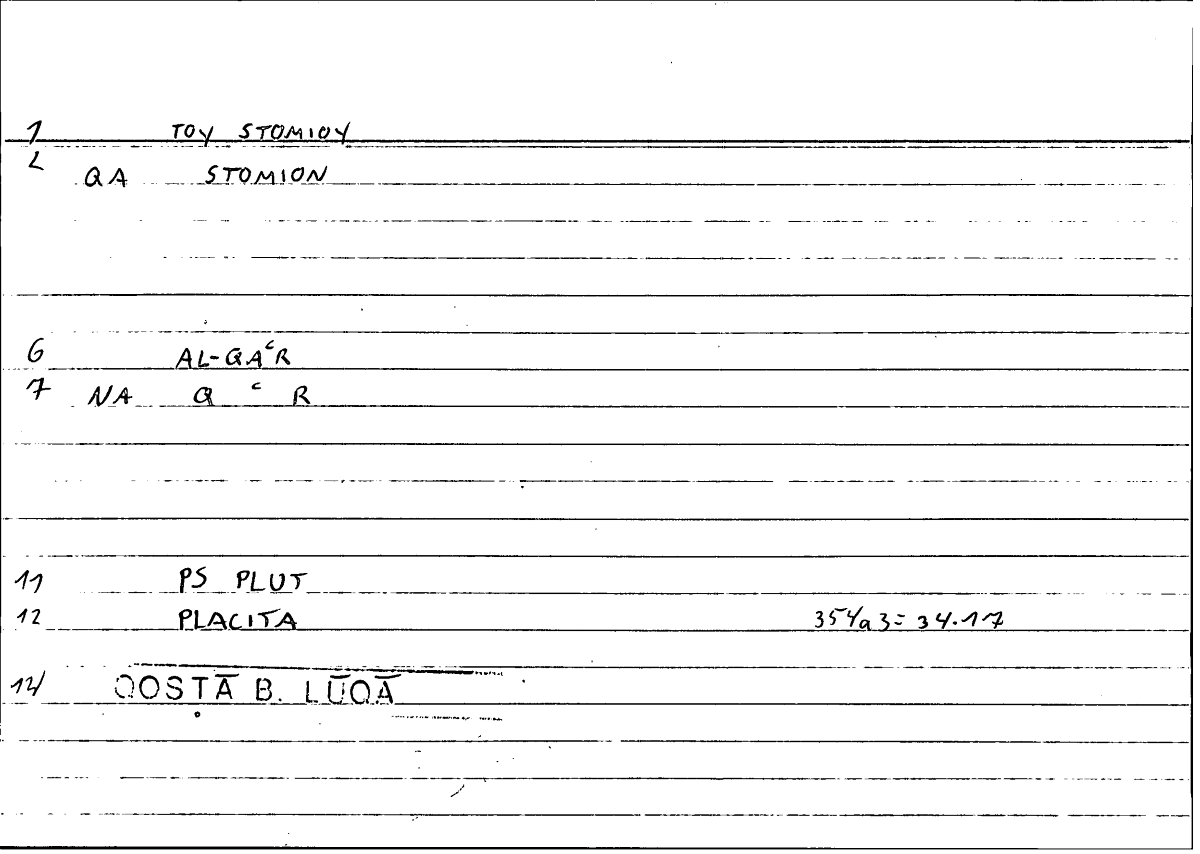 1 TOY STOMIOY
2 QA STOMION
6 AL-QAᶜR
7 NA Q ᶜ R
11 PS PLUT
12 PLACITA 354a3=34.17
14 QOSṬĀ B. LŪQĀ